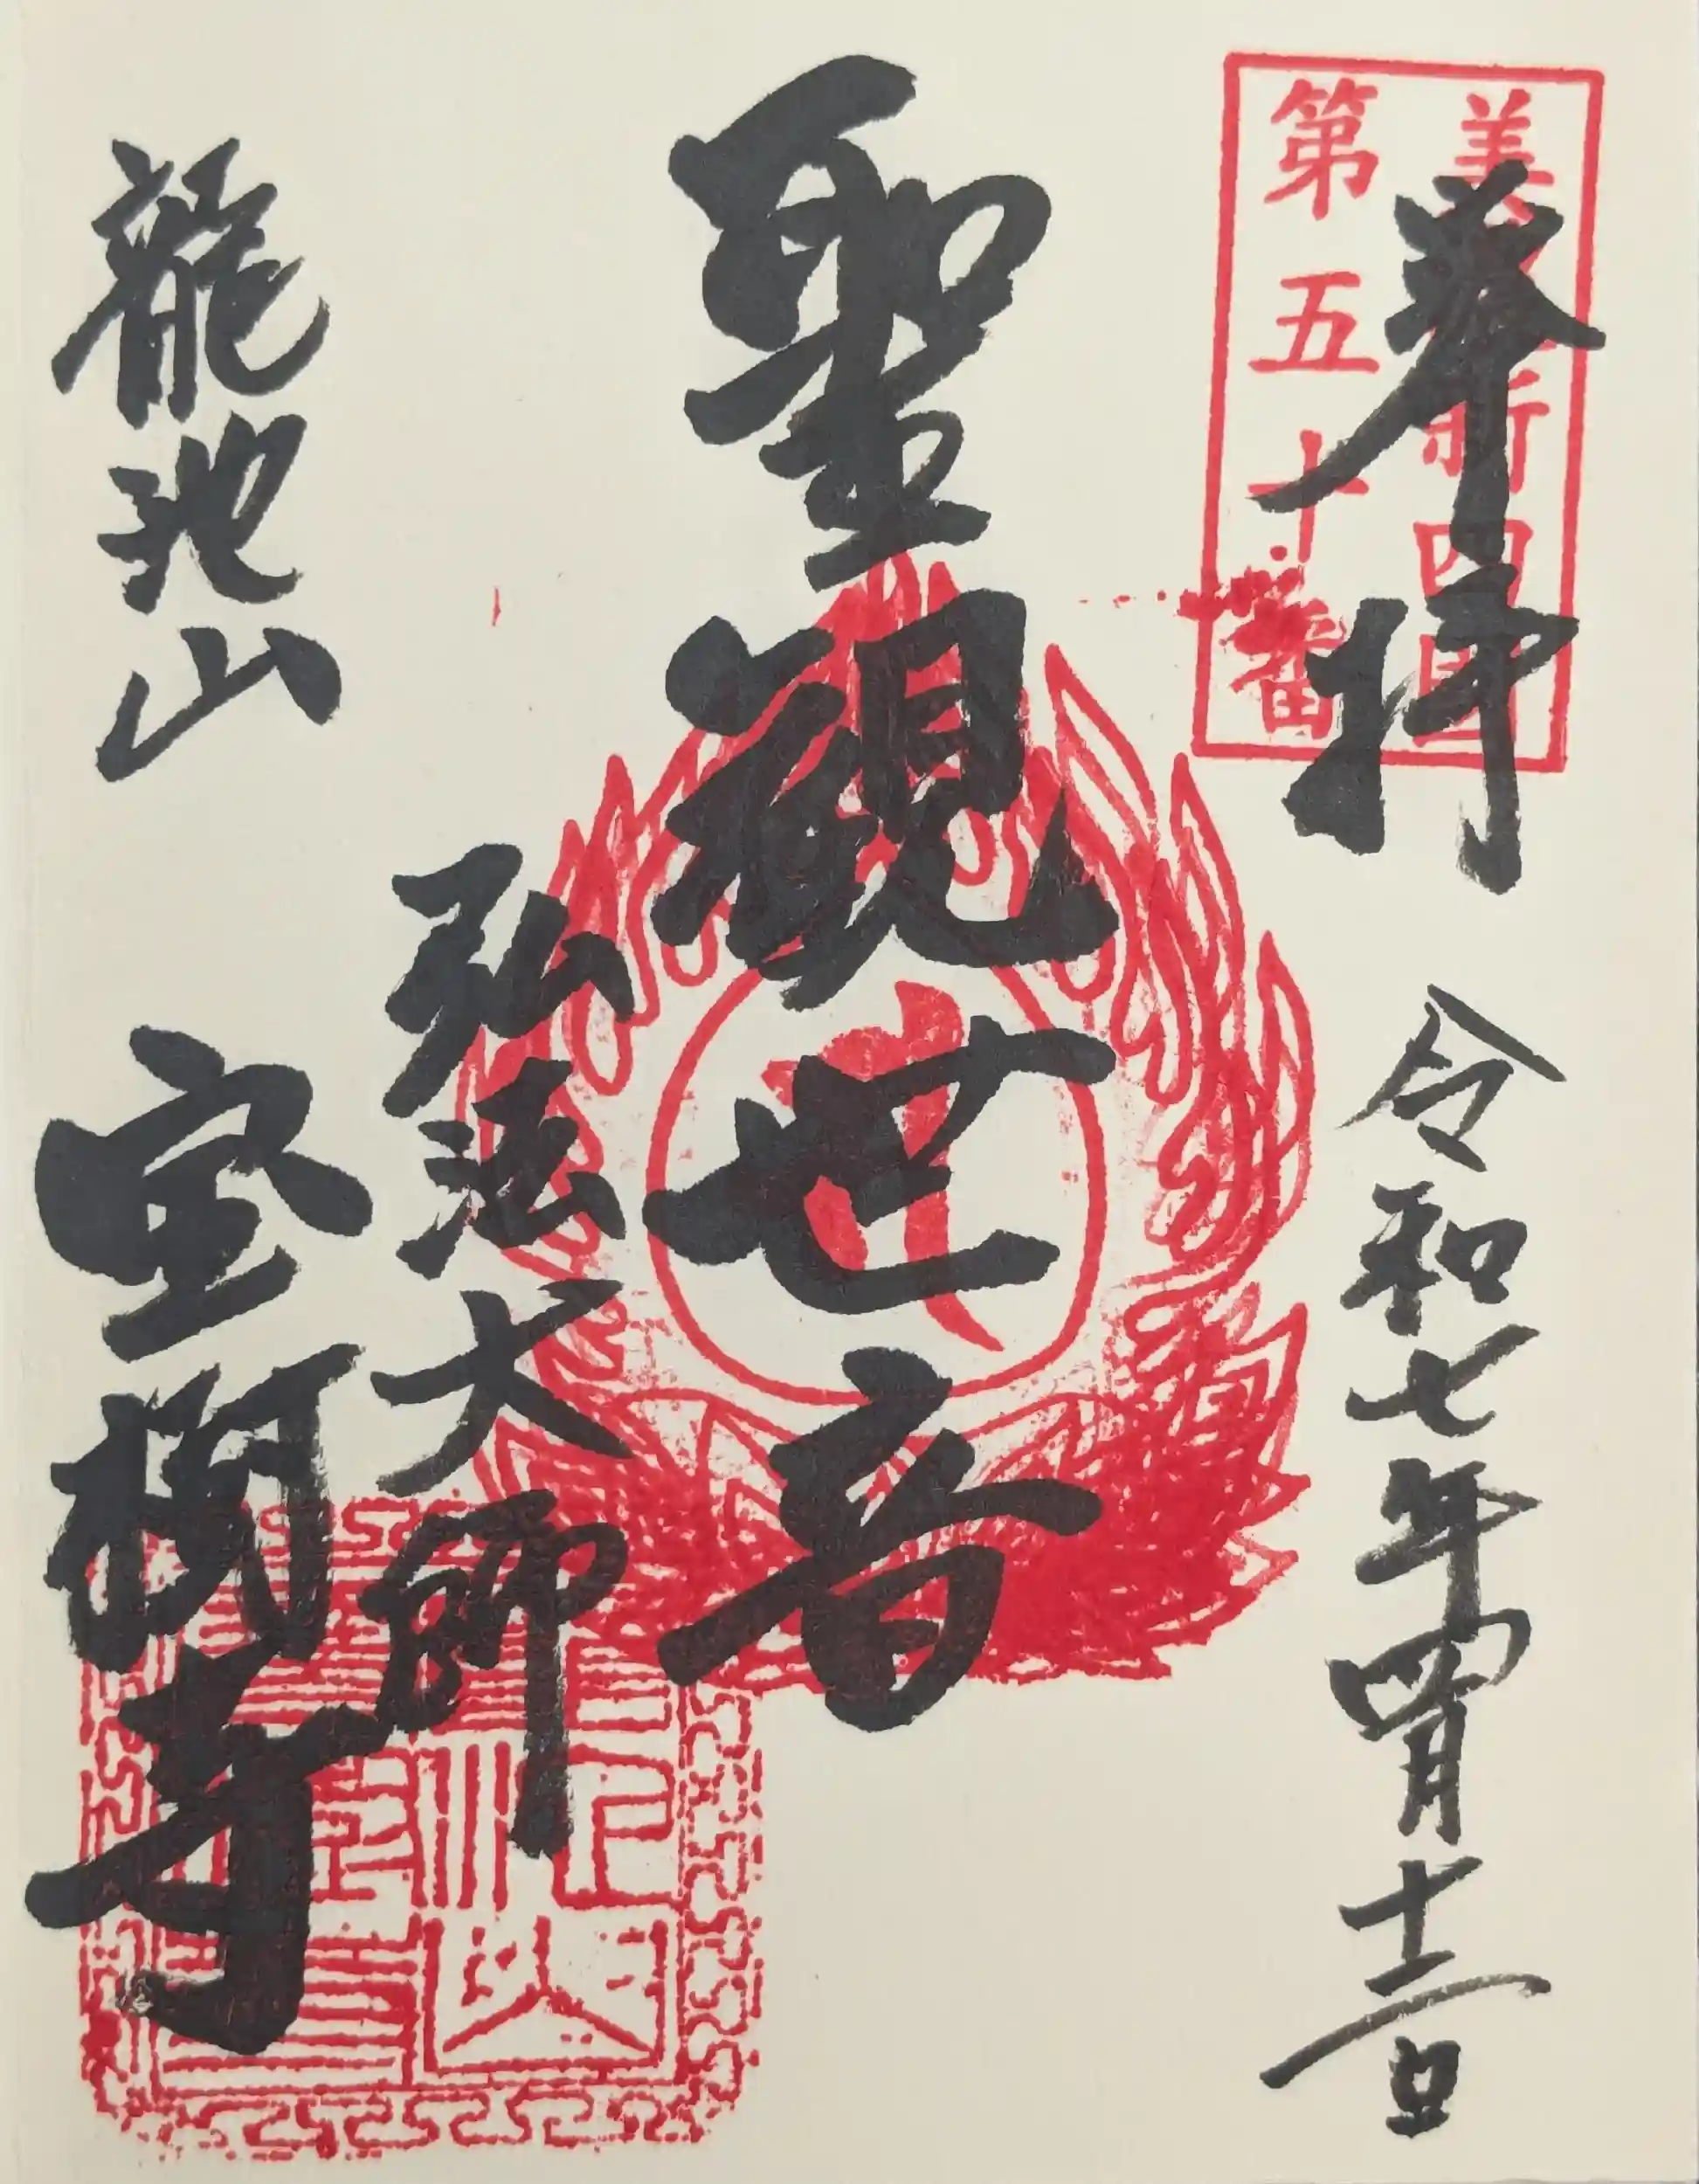 美濃新四国
第五十番
奉拝
令和七年四月十二日
聖観世音
弘法大師
龍池山
宝樹寺